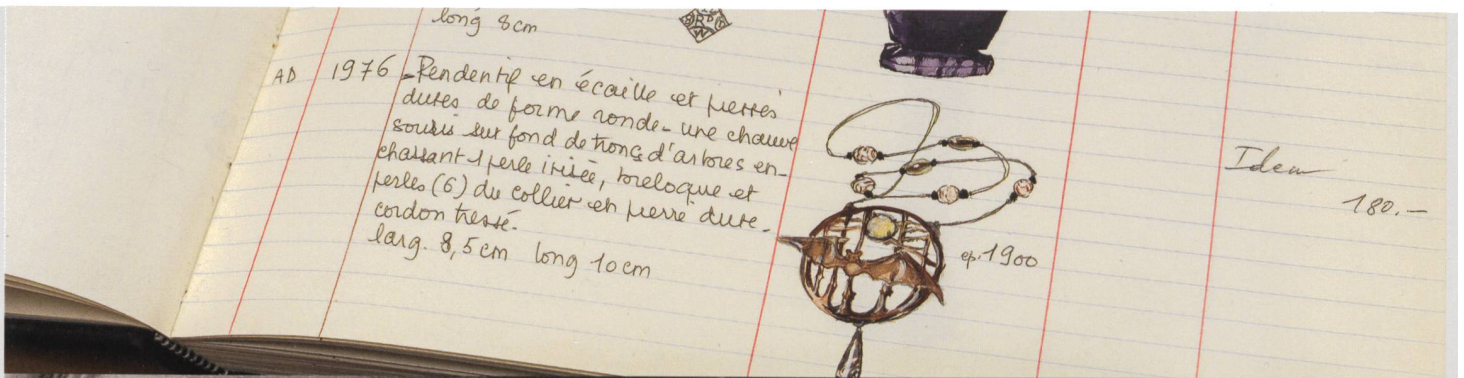 long 8cm
AD 1976 - Pendentif en écaille et pierres
dures de forme ronde - une chauve
souris sur fond de troncs d'arbres en-
chassant 1 perle irisée, breloque et
perles (6) du collier en pierre dure.
cordon tressé.
larg. 8,5cm long 10cm
ep. 1900
Idem
180.-